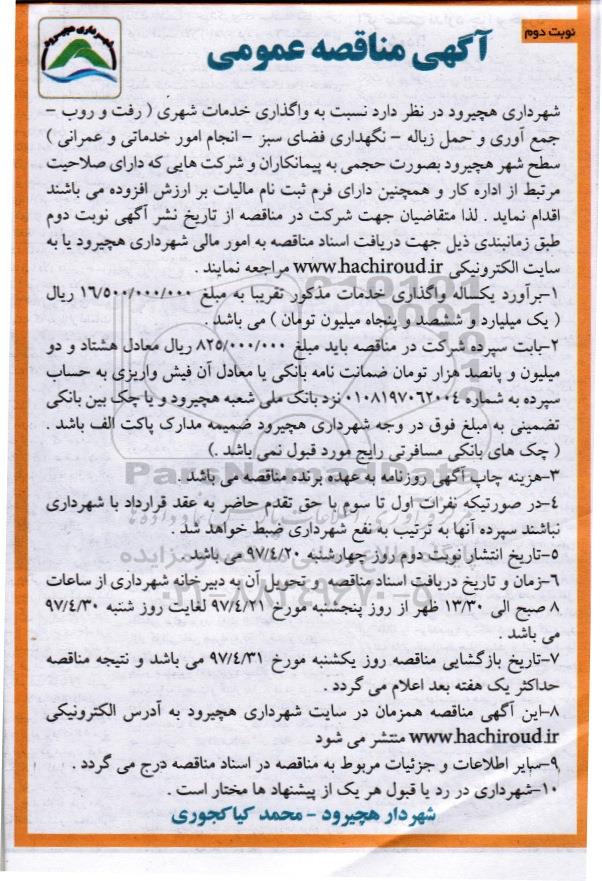 نوبت دوم
شهرداری هچیرود
آگهی مناقصه عمومی
شهرداری هچیرود در نظر دارد نسبت به واگذاری خدمات شهری ( رفت و روب –
جمع آوری و حمل زباله – نگهداری فضای سبز – انجام امور خدماتی و عمرانی )
سطح شهر هچیرود بصورت حجمی به پیمانکاران و شرکت هایی که دارای صلاحیت
مرتبط از اداره کار و همچنین دارای فرم ثبت نام مالیات بر ارزش افزوده می باشند
اقدام نماید . لذا متقاضیان جهت شرکت در مناقصه از تاریخ نشر آگهی نوبت دوم
طبق زمانبندی ذیل جهت دریافت اسناد مناقصه به امور مالی شهرداری هچیرود یا به
سایت الکترونیکی www.hachiroud.ir مراجعه نمایند .
۱–برآورد یکساله واگذاری خدمات مذکور تقریبا به مبلغ ۱۶/۵۰۰/۰۰۰/۰۰۰ ریال
( یک میلیارد و ششصد و پنجاه میلیون تومان ) می باشد .
۲–بابت سپرده شرکت در مناقصه باید مبلغ ۸۲۵/۰۰۰/۰۰۰ ریال معادل هشتاد و دو
میلیون و پانصد هزار تومان ضمانت نامه بانکی یا معادل آن فیش واریزی به حساب
سپرده به شماره ۰۱۰۸۱۹۷۰۶۲۰۰۴ نزد بانک ملی شعبه هچیرود و یا چک بین بانکی
تضمینی به مبلغ فوق در وجه شهرداری هچیرود ضمیمه مدارک پاکت الف باشد .
( چک های بانکی مسافرتی رایج مورد قبول نمی باشد .)
۳–هزینه چاپ آگهی روزنامه به عهده برنده مناقصه می باشد .
ParsNamadData
۴–در صورتیکه نفرات اول تا سوم با حق تقدم حاضر به عقد قرارداد با شهرداری
نباشند سپرده آنها به ترتیب به نفع شهرداری ضبط خواهد شد .
۵–تاریخ انتشار نوبت دوم روز چهارشنبه ۹۷/۴/۲۰ می باشد .
۶–زمان و تاریخ دریافت اسناد مناقصه و تحویل آن به دبیرخانه شهرداری از ساعات
۰۲۱–۸۸۳۴۹۶۷۰–۵
۸ صبح الی ۱۳/۳۰ ظهر از روز پنجشنبه مورخ ۹۷/۴/۲۱ لغایت روز شنبه ۹۷/۴/۳۰
می باشد .
۷–تاریخ بازگشایی مناقصه روز یکشنبه مورخ ۹۷/۴/۳۱ می باشد و نتیجه مناقصه
حداکثر یک هفته بعد اعلام می گردد .
۸–این آگهی مناقصه همزمان در سایت شهرداری هچیرود به آدرس الکترونیکی
www.hachiroud.ir منتشر می شود
۹–سایر اطلاعات و جزئیات مربوط به مناقصه در اسناد مناقصه درج می گردد .
۱۰–شهرداری در رد یا قبول هر یک از پیشنهاد ها مختار است .
شهردار هچیرود – محمد کیاکجوری